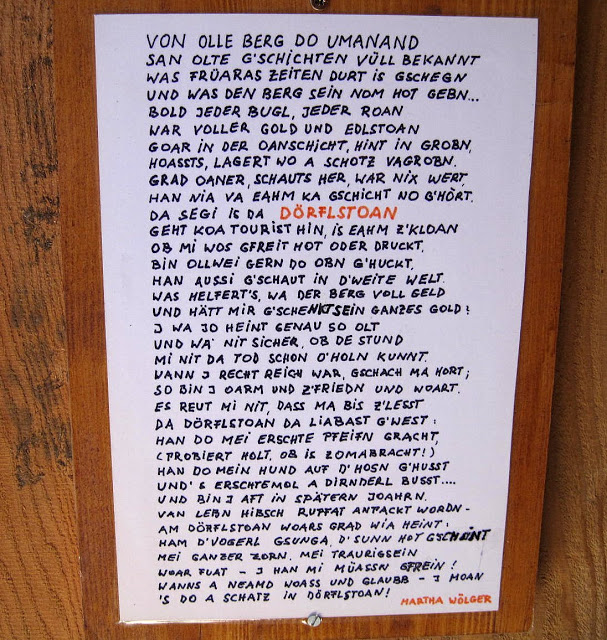 VON OLLE BERG DO UMANAND
SAN OLTE G'SCHICHTEN VÜLL BEKANNT
WAS FRÜARAS ZEITEN DURT IS GSCHEGN
UND WAS DEN BERG SEIN NOM HOT GEBN...
BOLD JEDER BUGL, JEDER ROAN
WAR VOLLER GOLD UND EDLSTOAN
GOAR IN DER OANSCHICHT, HINT IN GROBN,
HOASSTS, LAGERT WO A SCHOTZ VAGROBN.
GRAD OANER, SCHAUTS HER, WAR NIX WERT,
HAN NIA VA EAHM KA GSCHICHT NO G'HÖRT.
DA SEGI IS DA DÖRFLSTOAN
GEHT KOA TOURIST HIN, IS EAHM Z'KLOAN
OB MI WOS GFREIT HOT ODER DRUCKT,
BIN OLLWEI GERN DO OBN G'HUCKT,
HAN AUSSI G'SCHAUT IN D'WEITE WELT.
WAS HELFERT'S, WA DER BERG VOLL GELD
UND HÄTT MIR G'SCHENKT SEIN GANZES GOLD!
I WA JO HEINT GENAU SO OLT
UND WA' NIT SICHER, OB DE STUND
MI NIT DA TOD SCHON O'HOLN KUNNT.
WANN I RECHT REICH WAR, GSCHACH MA HORT;
SO BIN I OARM UND Z'FRIEDN UND WOART.
ES REUT MI NIT, DASS MA BIS Z'LESST
DA DÖRFLSTOAN DA LIABAST G'WEST:
HAN DO MEI ERSCHTE PFEIFN GRACHT,
(PROBIERT HOLT, OB IS ZOMABRACHT!)
HAN DO MEIN HUND AUF D'HOSN G'HUSST
UND'S ERSCHTEMOL A DIRNDERL BUSST....
UND BIN I AFT IN SPÄTERN JOAHRN.
VAN LEBN HIBSCH RUPPAT ANPACKT WORDN -
AM DÖRFLSTOAN WOARS GRAD WIA HEINT:
HAM D'VOGERL GSUNGA, D'SUNN HOT GSCHEINT
MEI GANZER ZORN, MEI TRAURIGSEIN
WOAR FUAT - I HAN MI MÜASSN GFREIN!
WANNS A NEAMD WOASS UND GLAUBB - I MOAN
'S DO A SCHATZ IN DÖRFLSTOAN!
MARTHA WÖLGER